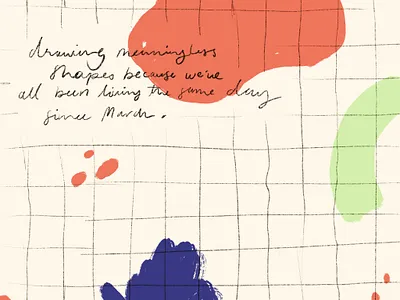 drawing meaningless
shapes because we've
all been living the same day
since March.